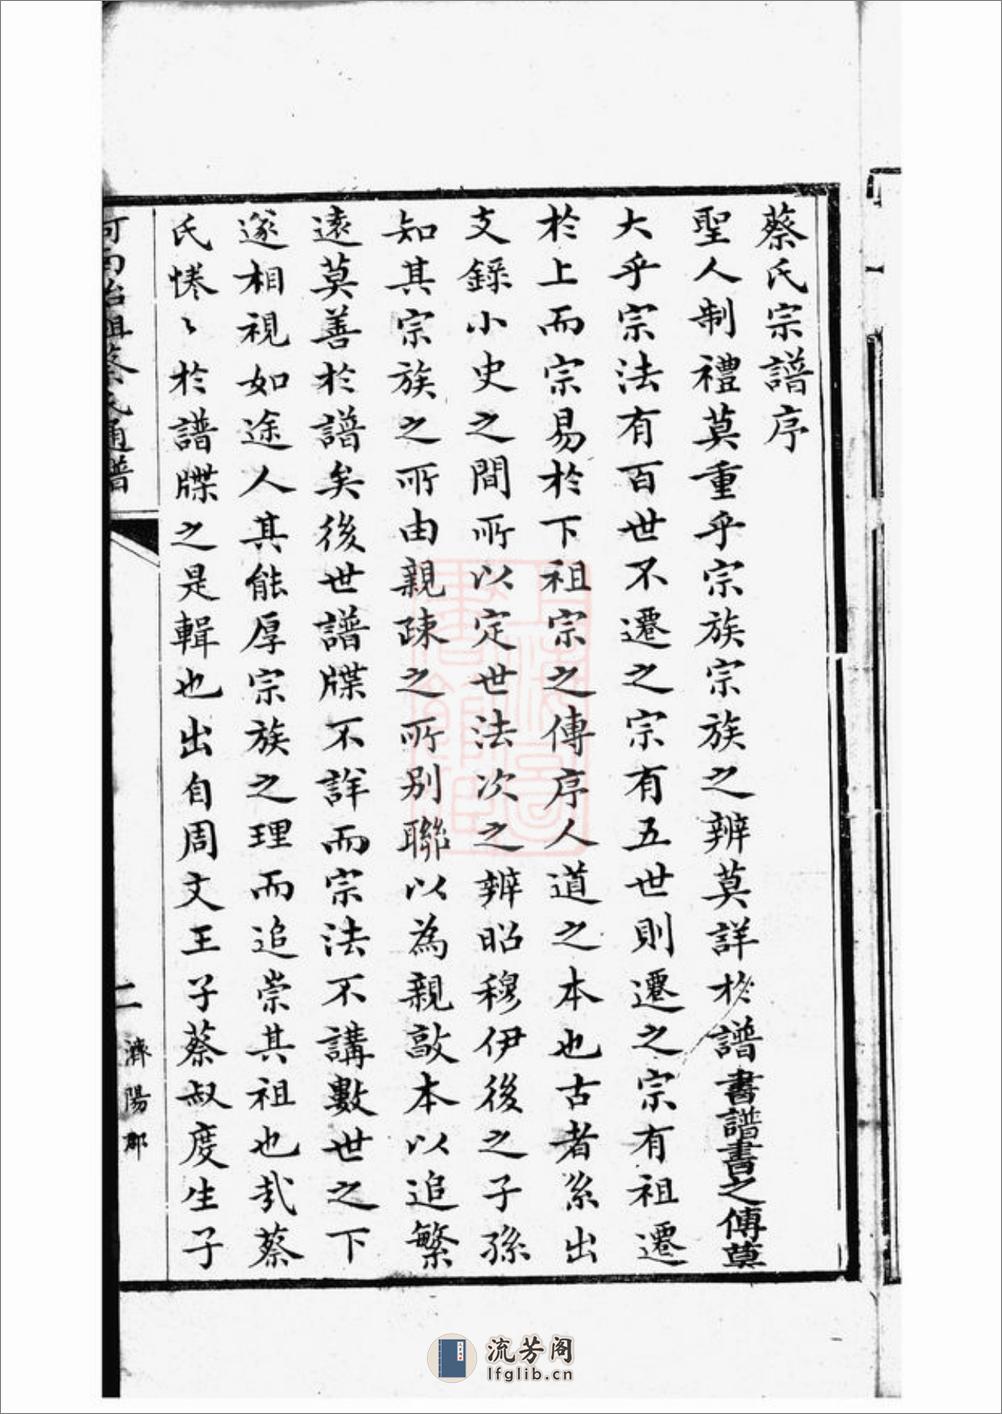 蔡氏宗譜序
聖人制禮莫重乎宗族宗族之辨莫詳於譜書譜書之傳莫
大乎宗法有百世不遷之宗有五世則遷之宗有祖遷
於上而宗易於下祖宗之傳序人道之本也古者系出
支錄小史之間所以定世法次之辨昭穆伊後之子孫
知其宗族之所由親疎之所別聯以為親敲本以追繁
遠莫善於譜矣後世譜牒不詳而宗法不講數世之下
遂相視如途人其能厚宗族之理而追崇其祖也哉蔡
氏惓〻於譜牒之是輯也出自周文王子蔡叔度生子
蔡氏通譜
二
濟陽郡
流芳阁
lfglib.cn